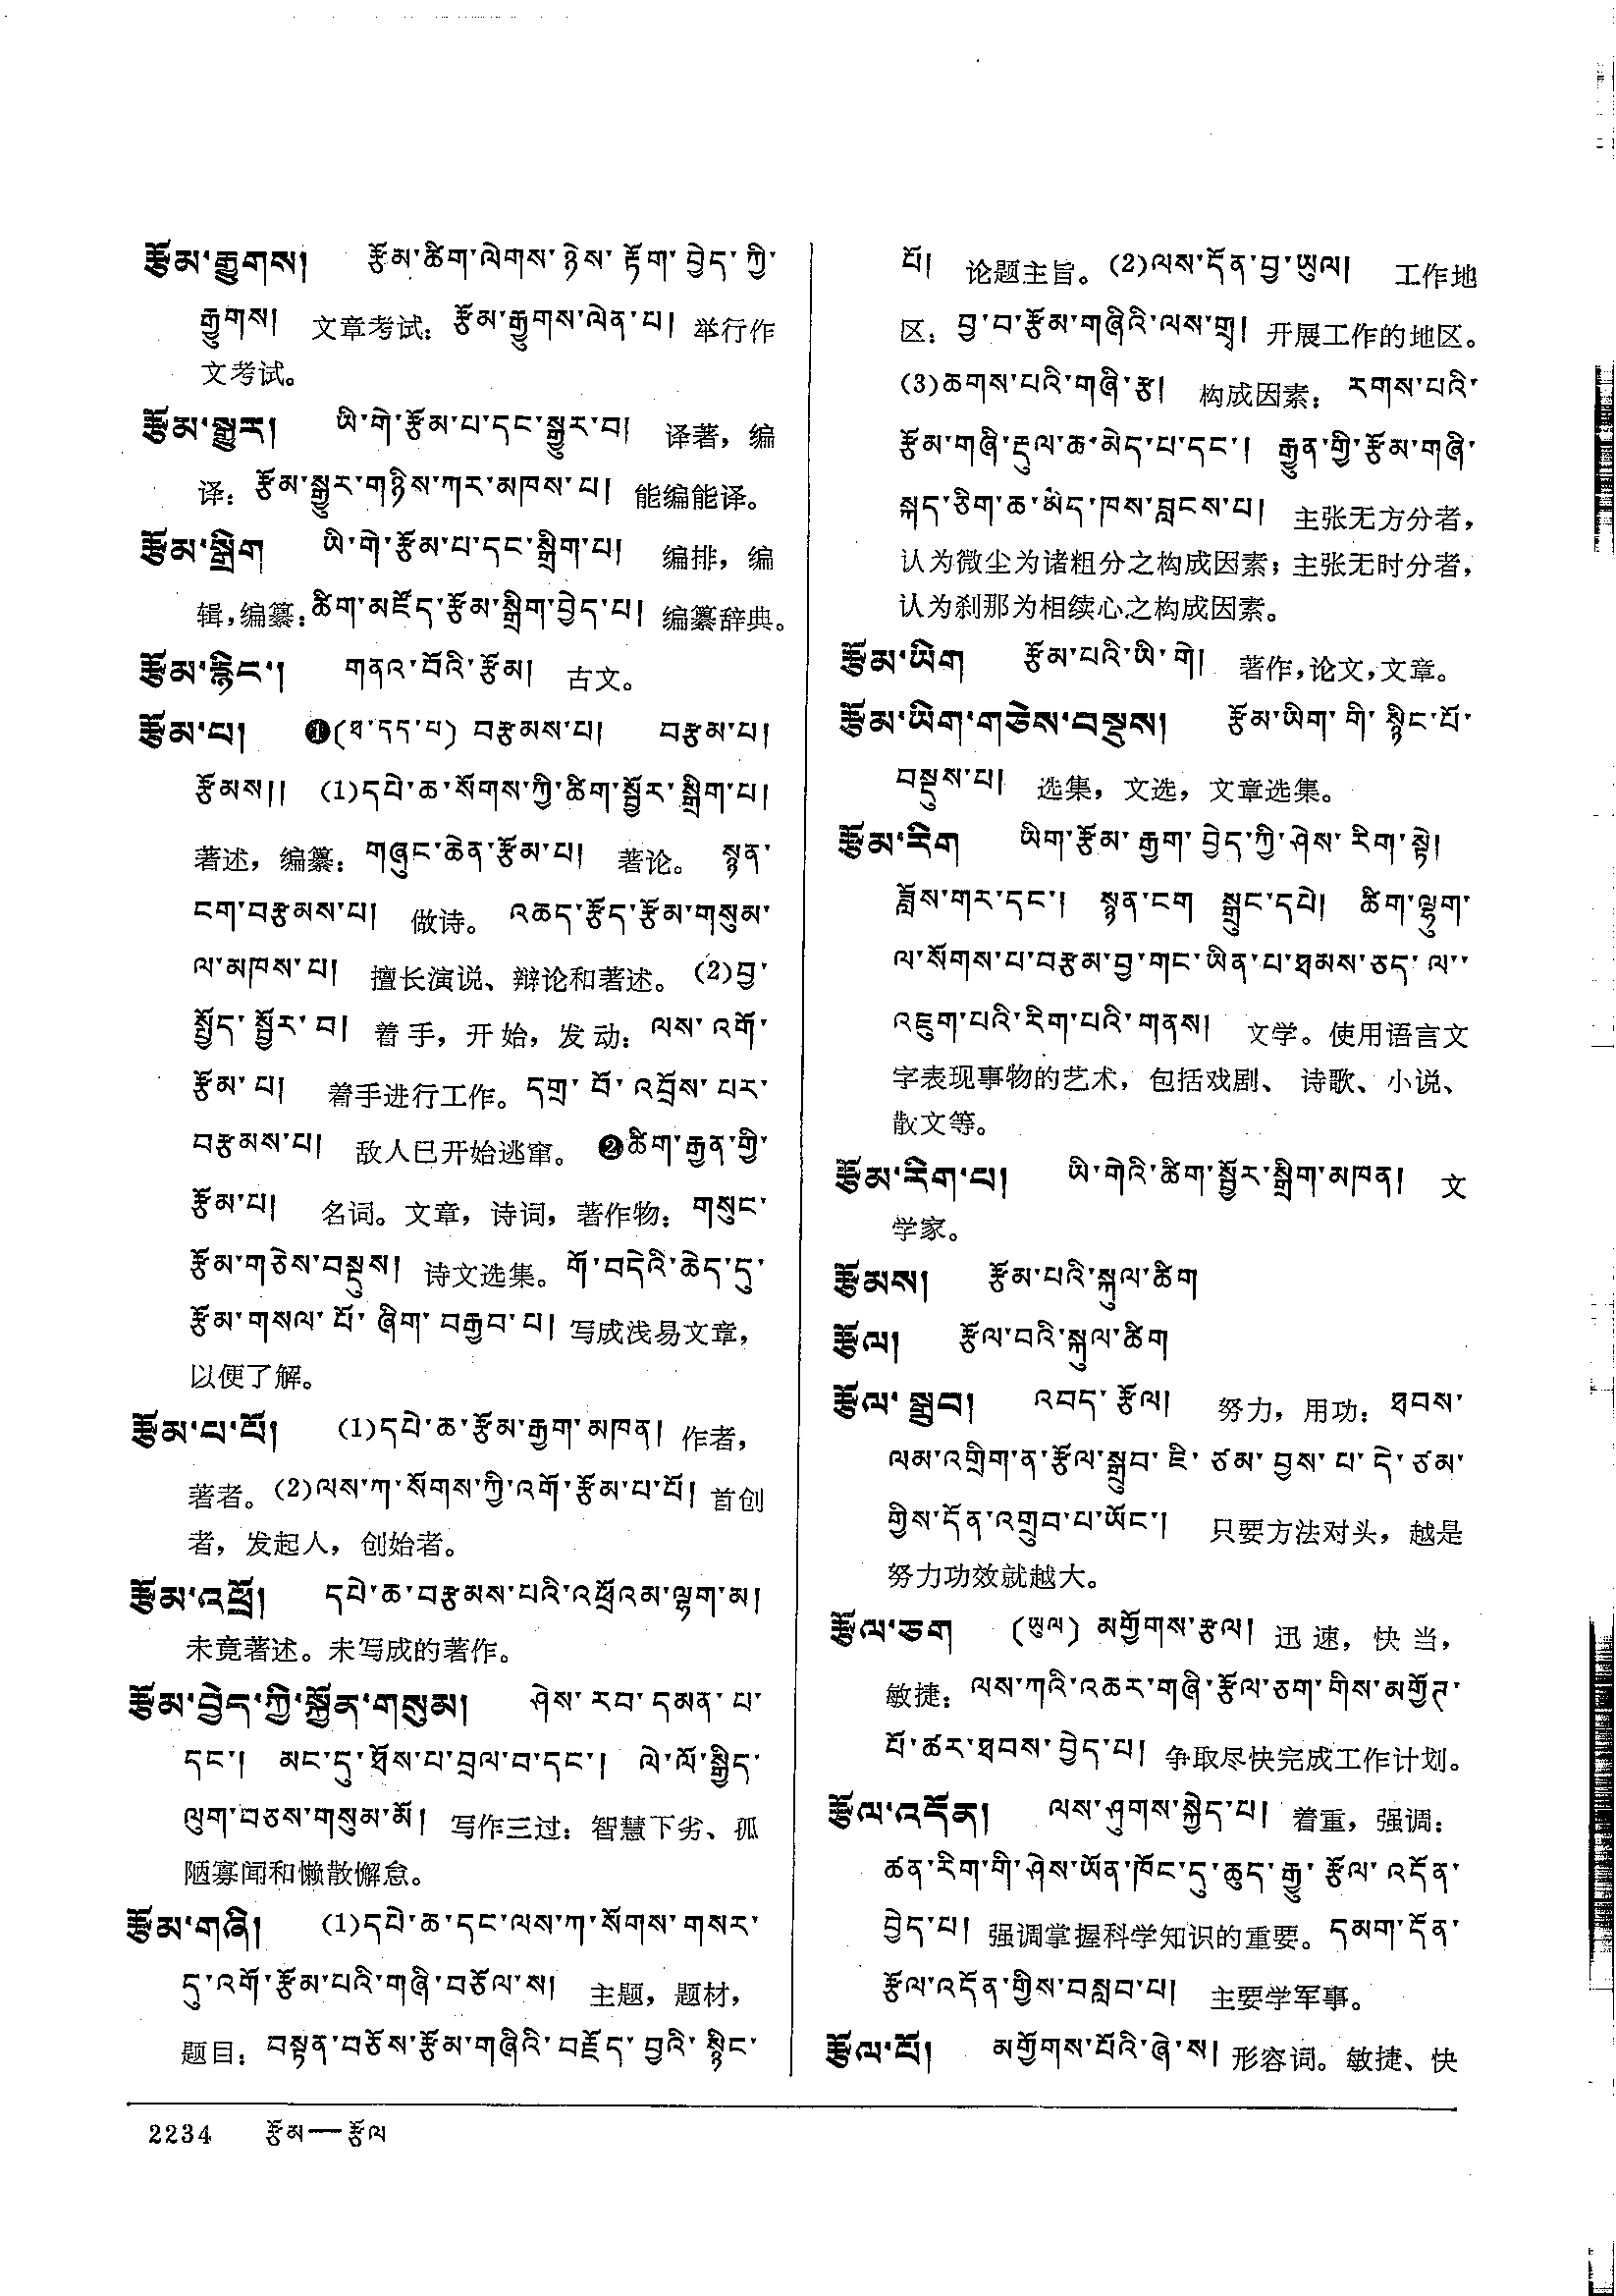 རྩོམ་རྒྱུགས། རྩོམ་ཚིག་ལེགས་ཉེས་རྟོག་བྱེད་ཀྱི་
རྒྱུགས། 文章考试：རྩོམ་རྒྱུགས་ལེན་པ། 举行作
文考试。
རྩོམ་སྒྱུར། ཡི་གེ་རྩོམ་པ་དང་སྒྱུར་བ། 译著，编
译：རྩོམ་སྒྱུར་གཉིས་ཀར་མཁས་པ། 能编能译。
རྩོམ་སྒྲིག ཡི་གེ་རྩོམ་པ་དང་སྒྲིག་པ། 编排，编
辑，编纂：ཚིག་མཛོད་རྩོམ་སྒྲིག་བྱེད་པ། 编纂辞典。
རྩོམ་རྙིང་། གནའ་བོའི་རྩོམ། 古文。
རྩོམ་པ། ❶(ཐ་དད་པ) བརྩམས་པ། བརྩམ་པ།
རྩོམས།། (1)དཔེ་ཆ་སོགས་ཀྱི་ཚིག་སྦྱོར་སྒྲིག་པ།
著述，编纂：གཞུང་ཆེན་རྩོམ་པ། 著论。 སྙན་
ངག་བརྩམས་པ། 做诗。 འཆད་རྩོད་རྩོམ་གསུམ་
ལ་མཁས་པ། 擅长演说、辩论和著述。(2)བྱ་
སྤྱོད་སྦྱོར་བ། 着手，开始，发动：ལས་འགོ་
རྩོམ་པ། 着手进行工作。དགྲ་བོ་འབྲོས་པར་
བརྩམས་པ། 敌人已开始逃窜。 ❷ཚིག་རྒྱན་གྱི་
རྩོམ་པ། 名词。文章，诗词，著作物：གསུང་
རྩོམ་གཅེས་བསྡུས། 诗文选集。གོ་བདེའི་ཆེད་དུ་
རྩོམ་གསལ་པོ་ཞིག་བརྒྱབ་པ། 写成浅易文章，
以便了解。
རྩོམ་པ་པོ། (1)དཔེ་ཆ་རྩོམ་རྒྱག་མཁན། 作者，
著者。(2)ལས་ཀ་སོགས་ཀྱི་འགོ་རྩོམ་པ་པོ། 首创
者，发起人，创始者。
རྩོམ་འཕྲོ། དཔེ་ཆ་བརྩམས་པའི་འཕྲོའམ་ལྷག་མ།
未竟著述。未写成的著作。
རྩོམ་བྱེད་ཀྱི་སྐྱོན་གསུམ། ཤེས་རབ་དམན་པ་
དང་། མང་དུ་ཐོས་པ་བྲལ་བ་དང་། ལེ་ལོ་སྒྱིད་
ལུག་བཅས་གསུམ་མོ། 写作三过：智慧下劣、孤
陋寡闻和懒散懈怠。
རྩོམ་གཞི། (1)དཔེ་ཆ་དང་ལས་ཀ་སོགས་གསར་
དུ་འགོ་རྩོམ་པའི་གཞི་བཅོལ་ས། 主题，题材，
题目：བསྟན་བཅོས་རྩོམ་གཞིའི་བརྗོད་བྱའི་སྙིང་
པོ། 论题主旨。(2)ལས་དོན་བྱ་ཡུལ། 工作地
区：བྱ་བ་རྩོམ་གཞིའི་ལས་གྲྭ། 开展工作的地区。
(3)ཆགས་པའི་གཞི་རྩ། 构成因素：རགས་པའི་
རྩོམ་གཞི་རྡུལ་ཆ་མེད་པ་དང་། རྒྱུན་གྱི་རྩོམ་གཞི་
སྐད་ཅིག་ཆ་མེད་ཁས་བླངས་པ། 主张无方分者，
认为微尘为诸粗分之构成因素；主张无时分者，
认为刹那为相续心之构成因素。
རྩོམ་ཡིག རྩོམ་པའི་ཡི་གེ། 著作，论文，文章。
རྩོམ་ཡིག་གཅེས་བསྡུས། རྩོམ་ཡིག་གི་སྙིང་པོ་
བསྡུས་པ། 选集，文选，文章选集。
རྩོམ་རིག ཡིག་རྩོམ་རྒྱག་བྱེད་ཀྱི་ཤེས་རིག་སྟེ།
ཟློས་གར་དང་། སྙན་ངག སྒྲུང་དཔེ། ཚིག་ལྷུག་
ལ་སོགས་པ་བརྩམ་བྱ་གང་ཡིན་པ་ཐམས་ཅད་ལ་་
འཇུག་པའི་རིག་པའི་གནས། 文学。使用语言文
字表现事物的艺术，包括戏剧、诗歌、小说、
散文等。
རྩོམ་རིག་པ། ཡི་གེའི་ཚིག་སྦྱོར་སྒྲིག་མཁན། 文
学家。
རྩོམས། རྩོམ་པའི་སྐུལ་ཚིག
རྩོལ། རྩོལ་བའི་སྐུལ་ཚིག
རྩོལ་སྒྲུབ། འབད་རྩོལ། 努力，用功：ཐབས་
ལམ་འགྲིག་ན་རྩོལ་སྒྲུབ་ཇི་ཙམ་བྱས་པ་དེ་ཙམ་
གྱིས་དོན་འགྲུབ་པ་ཡོང་། 只要方法对头，越是
努力功效就越大。
རྩོལ་ཅག (ཡུལ) མགྱོགས་རྩལ། 迅速，快当，
敏捷：ལས་ཀའི་འཆར་གཞི་རྩོལ་ཅག་གིས་མགྱོཊ་
པོ་ཚར་ཐབས་བྱེད་པ། 争取尽快完成工作计划。
རྩོལ་འདོན། ལས་ཤུགས་སྐྱེད་པ། 着重，强调：
ཚན་རིག་གི་ཤེས་ཡོན་ཁོང་དུ་ཆུད་རྒྱུ་རྩོལ་འདོན་
བྱེད་པ། 强调掌握科学知识的重要。དམག་དོན་
རྩོལ་འདོན་གྱིས་བསླབ་པ། 主要学军事。
རྩོལ་པོ། མགྱོགས་པོའི་ཞེ་ས། 形容词。敏捷、快
2234 རྩོམ—རྩོལ